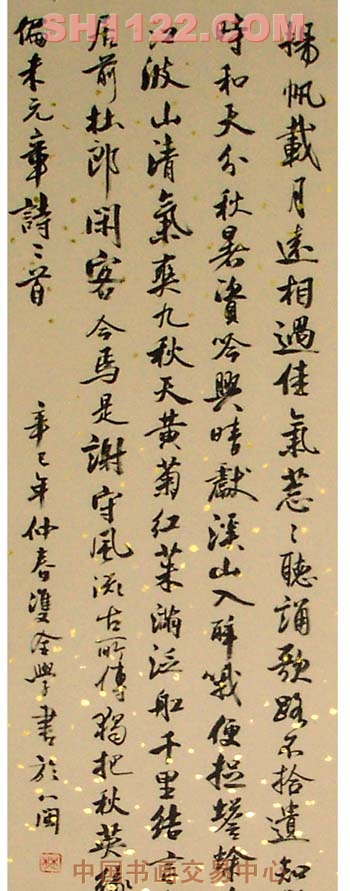 SH1122.COM
揚帆載月遠相過佳氣葱〻聽誦歌路不拾遺知
時和天分秋暑資吟興晴獻溪山入醉哦便捉蟾蜍
江波山清氣爽九秋天黃菊紅茱滿泛船千里結言
居前杜郎閑客今焉是謝守風流古所傳獨把秋英緣
偏米元章詩二首
辛巳年仲春雙全學書於八閩
中国书画交易中心